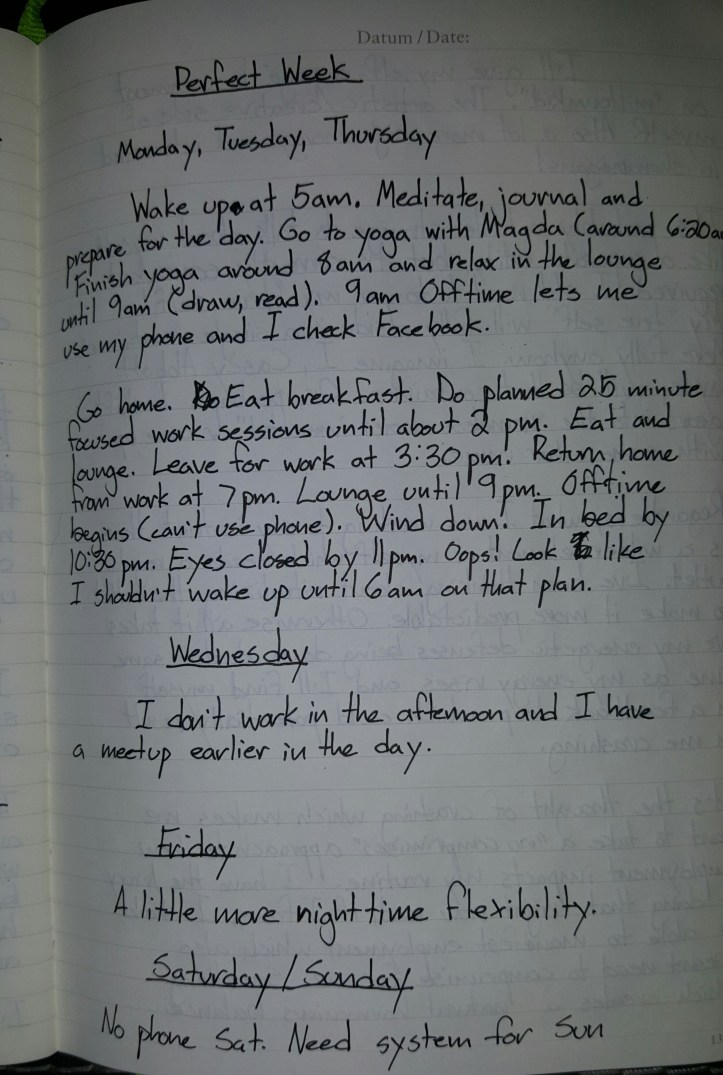 Datum / Date:
Perfect Week
Monday, Tuesday, Thursday
Wake up at 5am. Meditate, journal and
prepare for the day. Go to yoga with Magda (around 6:20am
Finish yoga around 8am and relax in the lounge
until 9am (draw, read). 9am Offtime lets me
use my phone and I check Facebook.
Go home. Eat breakfast. Do planned 25 minute
focused work sessions until about 2 pm. Eat and
lounge. Leave for work at 3:30 pm. Return home
from work at 7pm. Lounge until 9pm. Offtime
begins (can't use phone). Wind down. In bed by
10:30 pm. Eyes closed by 11pm. Oops! Look like
I shouldn't wake up until 6am on that plan.
Wednesday
I don't work in the afternoon and I have
a meetup earlier in the day.
Friday
A little more nighttime flexibility.
Saturday / Sunday
No phone Sat. Need system for Sun